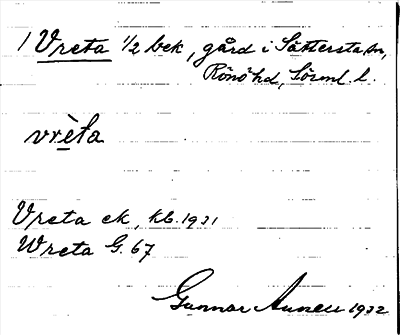 1 Vreta 1/2 bek, gård i Sättersta sn,
Rönö hd, Sörml. l.
vrèta
Vreta ek, kb. 1931
Wreta G. 67
Gunnar 1932